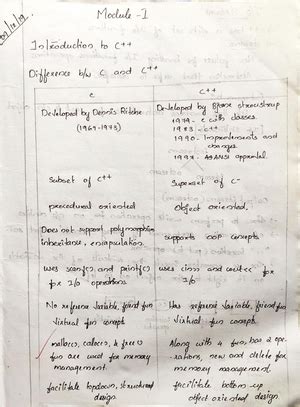 Module - I
Introduction to C++
Difference b/w C and C++
C
C++
Developed by Dennis Ritche
(1969-1973)
Developed by Bjarne stroustrup
1979 - C with classes
1983 - C++
1990 - Improvements and
changes
Subset of C++
Superset of C
procedural oriented
Object oriented.
Does not support polymorphism
inheritance, encapsulation.
supports OOP concepts
uses scanf() and printf()
for I/O operations
uses cin>> and cout<< for
I/O
No reference Variable, friend fun
Virtual fun concept
Has reference Variable, friend fun
Virtual fun concept
malloc(), calloc(), & free()
fun are used for memory
management.
Along with 4 fun, has 2 ope-
rations, new and delete for
memory management.
facilitate topdown, structured
design
facilitate bottom-up
object oriented design.